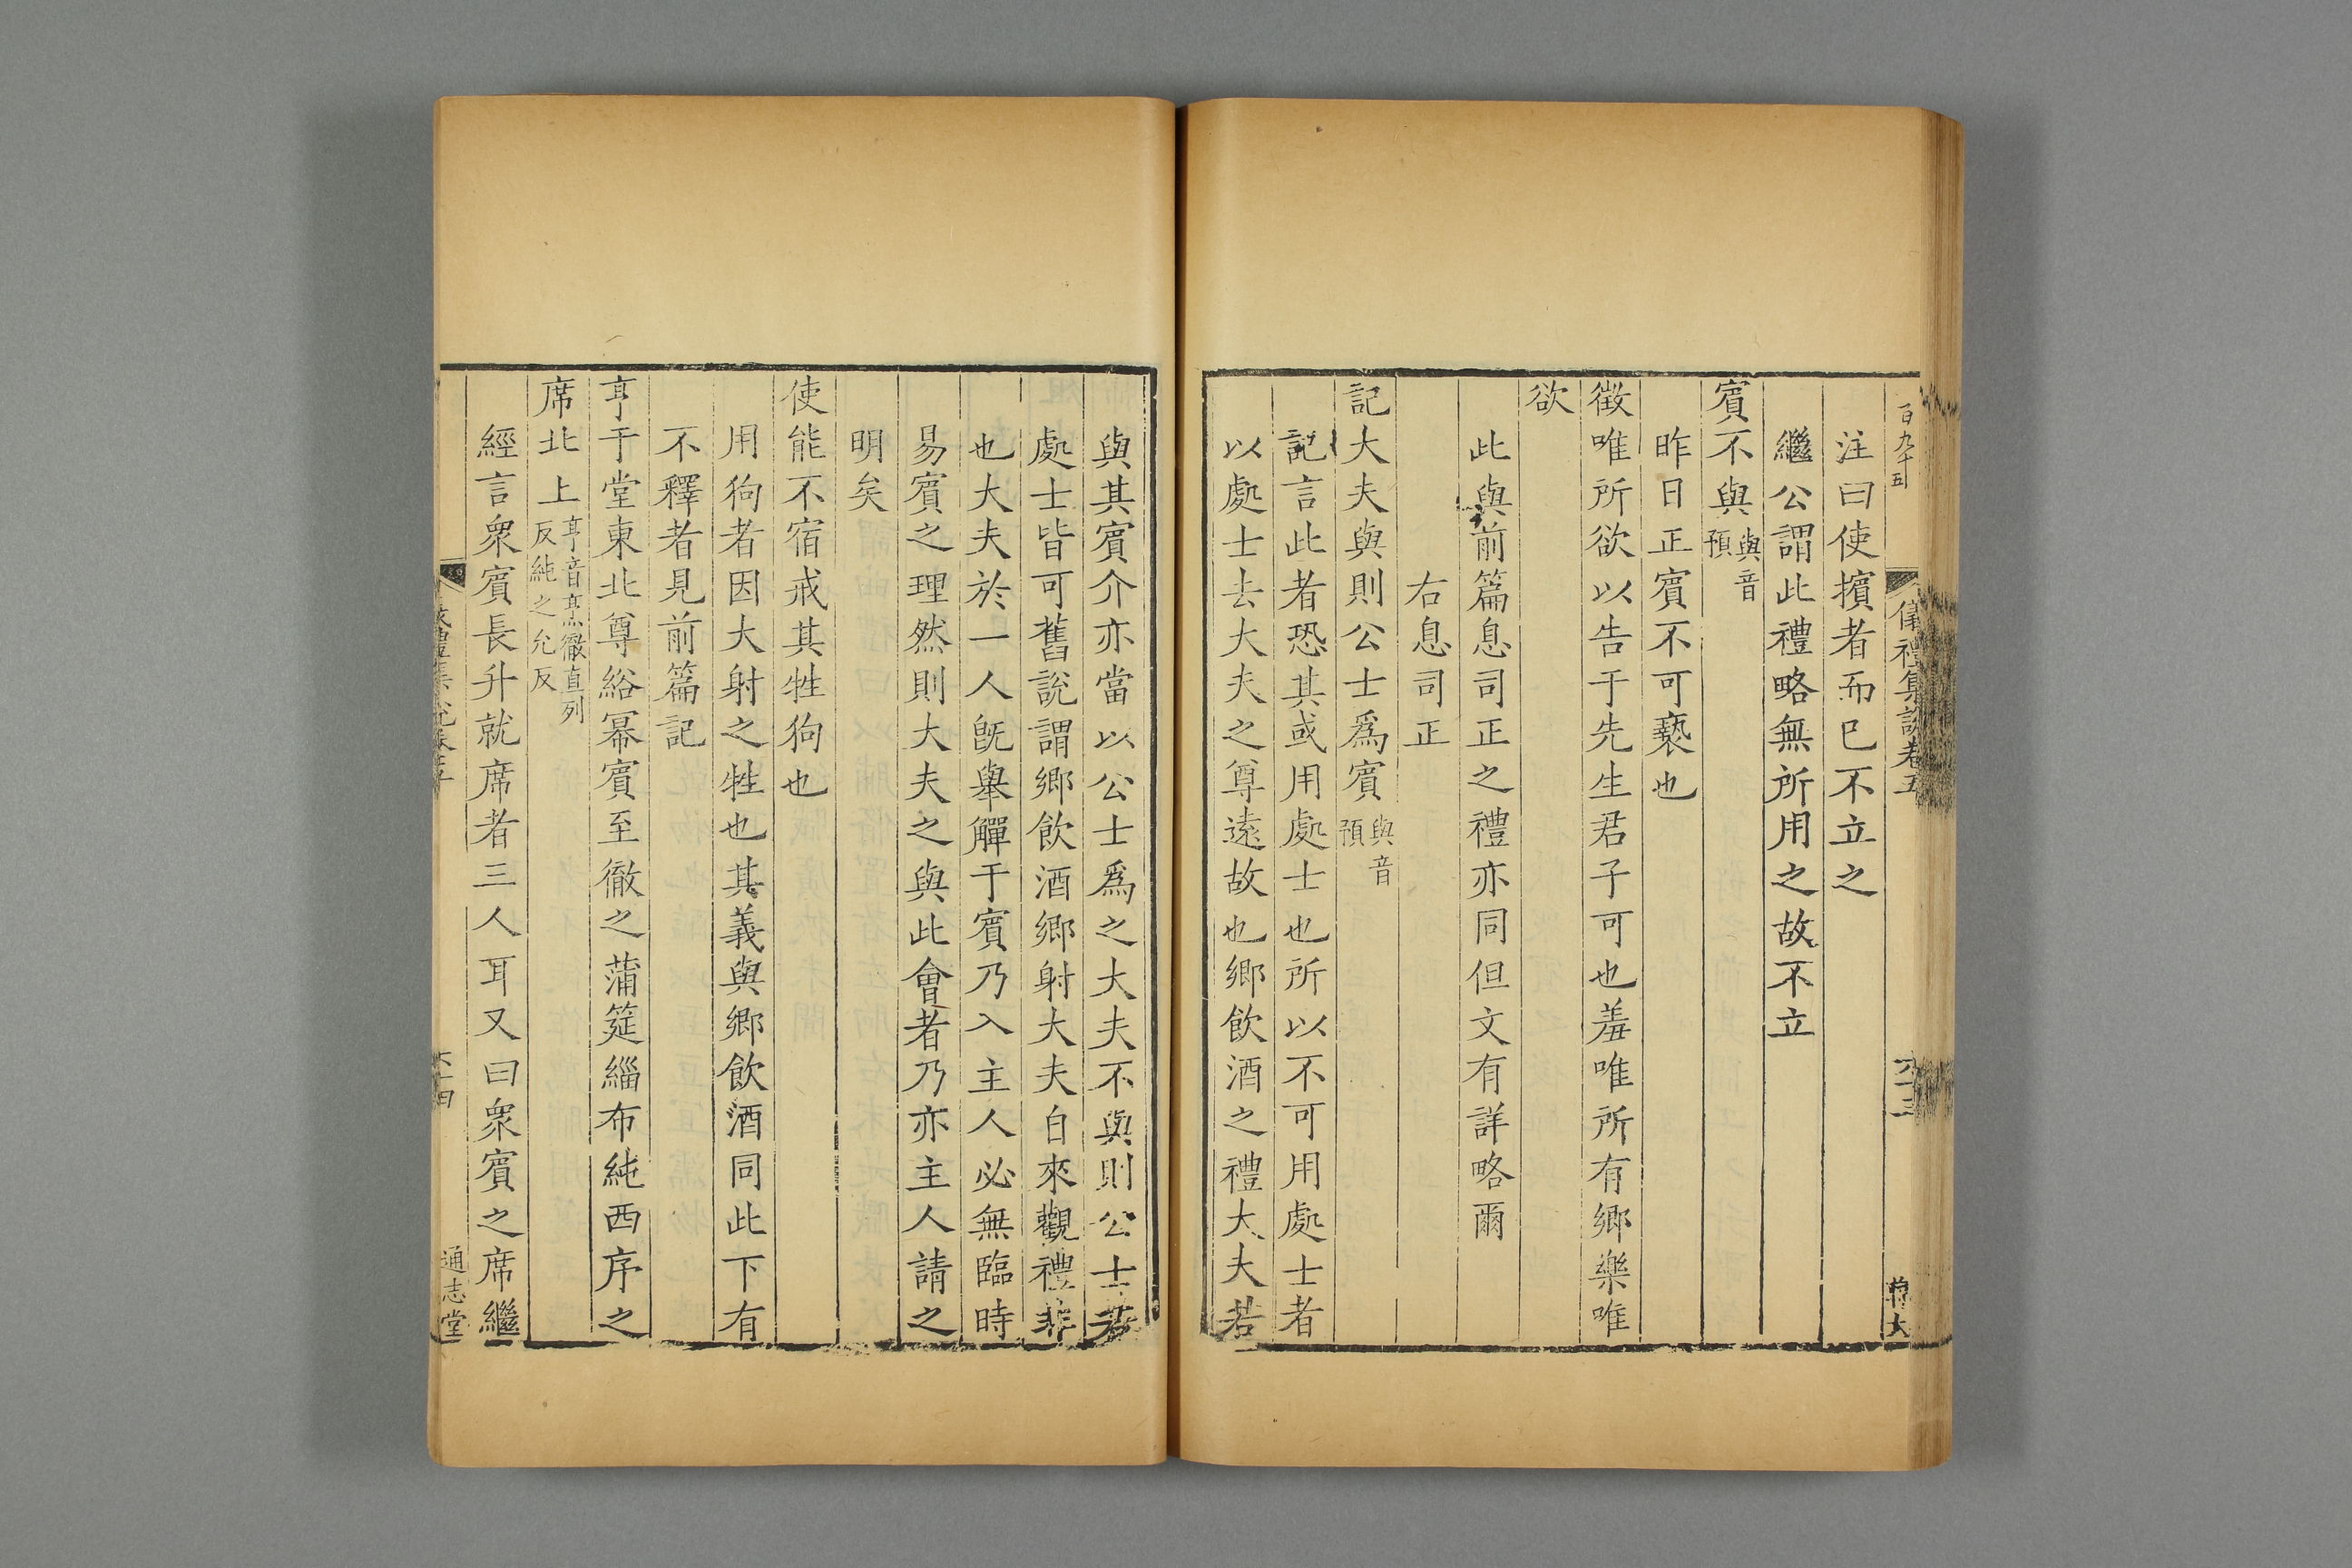 百九十五
儀禮集說卷五
六十三
注曰使擯者而已不立之
繼公謂此禮略無所用之故不立
賓不與與音預
昨日正賓不可褻也
徵唯所欲以告于先生君子可也羞唯所有鄉樂唯
欲
此與前篇息司正之禮亦同但文有詳略爾
右息司正
記大夫與則公士爲賓與音預
記言此者恐其或用處士也所以不可用處士者
以處士去大夫之尊遠故也鄉飲酒之禮大夫若
與其賓介亦當以公士爲之大夫不與則公士若
處士皆可舊說謂鄉飲酒鄉射大夫自來觀禮非
也大夫於一人旣舉觶于賓乃入主人必無臨時
易賓之理然則大夫之與此會者乃亦主人請之
明矣
使能不宿戒其牲狗也
用狗者因大射之牲也其義與鄉飲酒同此下有
不釋者見前篇記
亨于堂東北尊綌幂賓至徹之蒲筵緇布純西序之
席北上亨音烹徹直列反純之允反
經言衆賓長升就席者三人耳又曰衆賓之席繼
六十四
通志堂